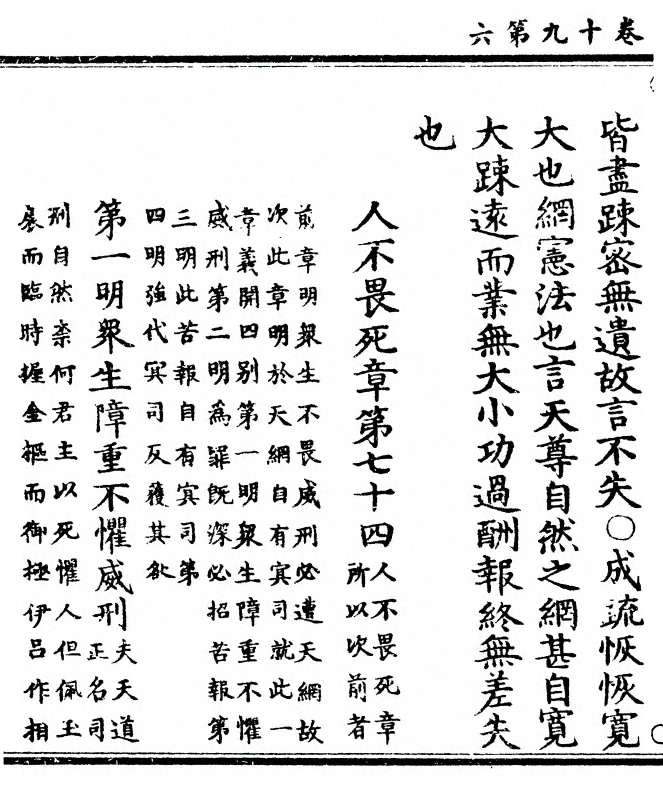 卷十九第六
皆盡踈密無遺故言不失○成疏恢恢寬
大也網憲法也言天尊自然之網甚自寬
大踈遠而業無大小功過酬報終無差失
也
人不畏死章第七十四人不畏死章
所以次前者
前章明衆生不畏威刑必遭天網故
次此章明於天網自有㝠司就此一
章義開四别第一明衆生障重不懼
威刑第二明為罪旣深必招苦報第
三明此苦報自有㝠司第
四明強代㝠司反獲其殃
第一明衆生障重不懼威刑夫天道
正名司
刑自然柰何君主以死懼人但佩玉
扆而臨時握金樞而御極伊吕作相